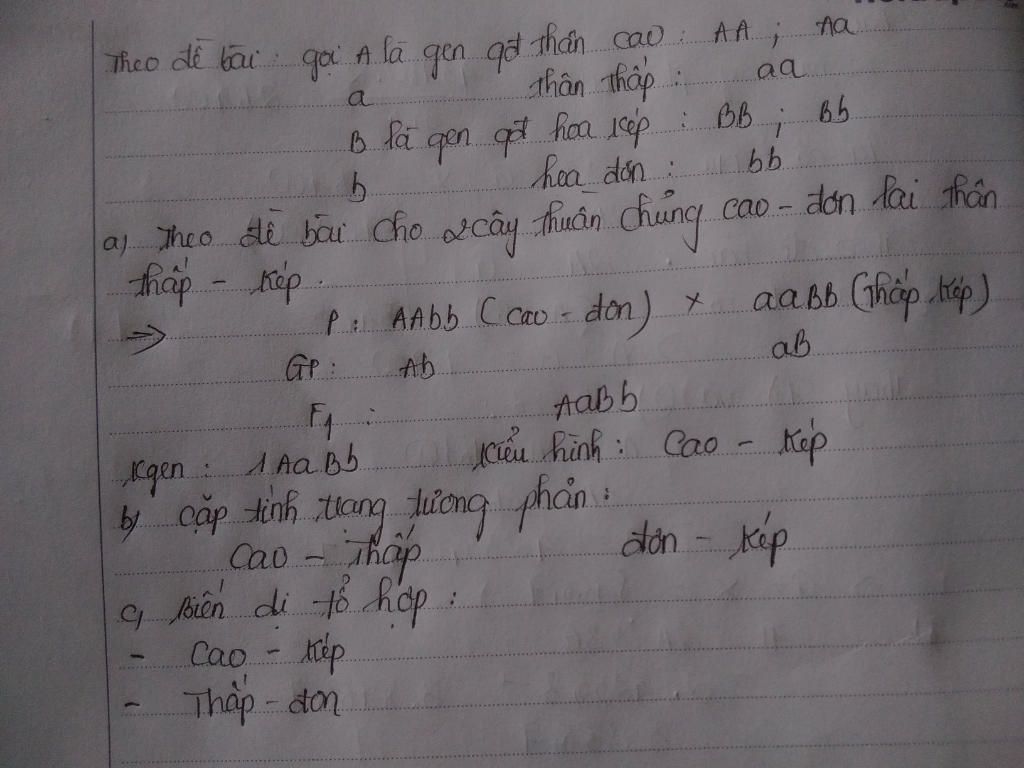 Theo đề bài: gọi A là gen qđ thân cao: AA ; Aa
a thân thấp: aa
B là gen qđ hoa kép: BB ; Bb
b hoa đơn: bb
a) Theo đề bài cho 2 cây thuần chủng cao - đơn lai thân
thấp - kép.
=> P: AAbb (cao - đơn) × aaBB (Thấp kép)
GP: Ab aB
F1 : AaBb
Kgen: 1AaBb Kiểu hình: Cao - kép
b) cặp tính trạng tương phản:
Cao - Thấp đơn - kép
c, Biến dị tổ hợp:
- Cao - kép
- Thấp - đơn